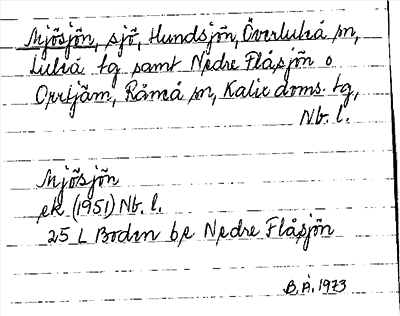 Mjösjön, sjö, Hundsjön, Överluleå sn,
Luleå tg samt Nedre Flåsjön o
Orrtjäm, Råneå sn, Kalix doms. tg,
Nb. l.
Mjösjön
ek (1951) Nb. l.
25 L Boden be Nedre Flåsjön
B.Å. 1973